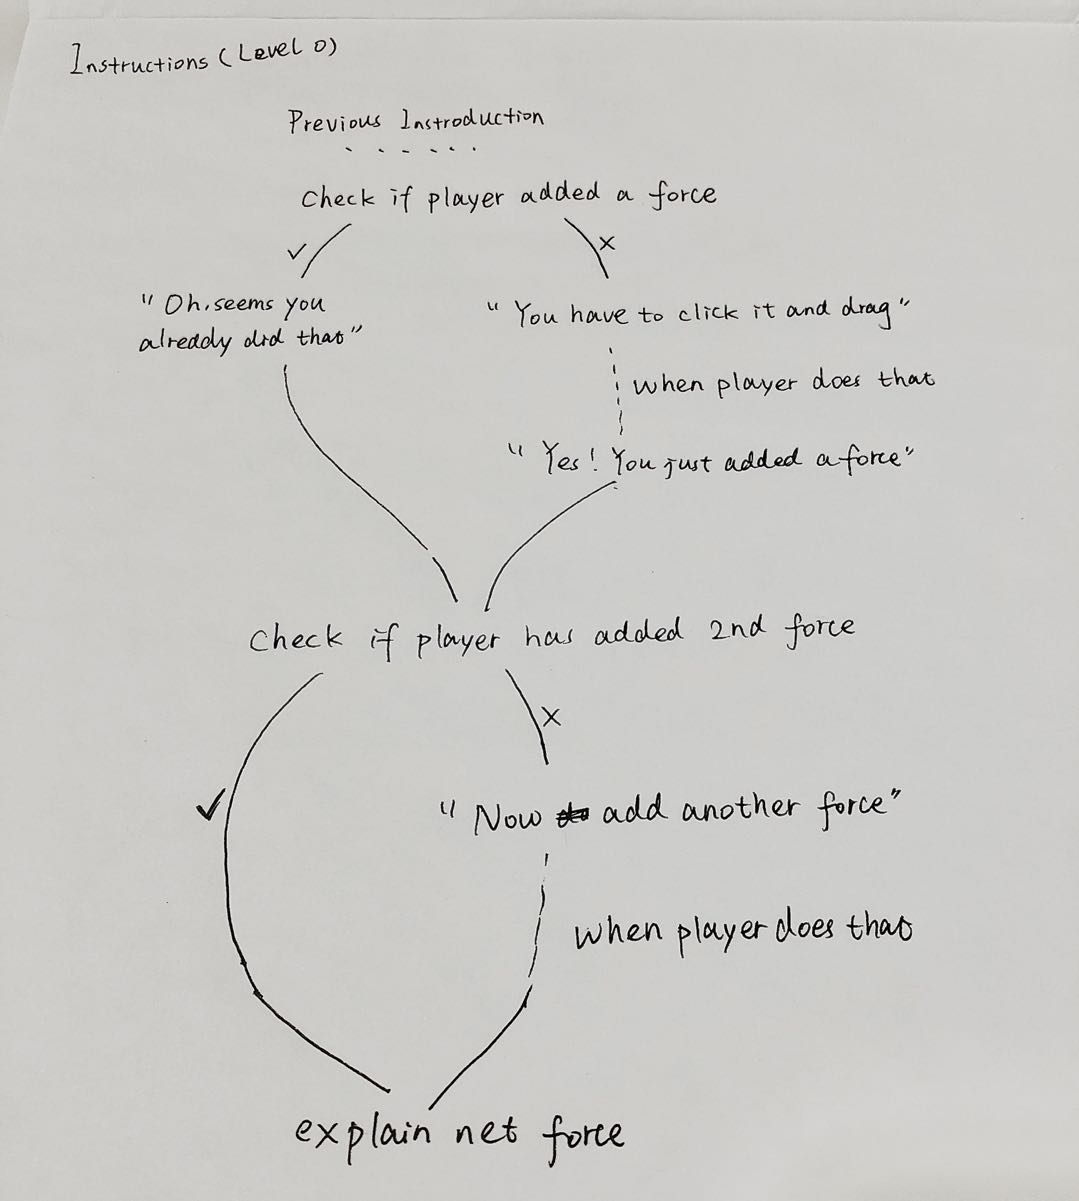 Instructions (Level 0)
Previous Instroduction
. . . . . .
Check if player added a force
✓
×
" Oh, seems you
already did that "
" You have to click it and drag "
when player does that
" Yes! You just added a force "
Check if player has added 2nd force
×
✓
" Now add another force "
when player does that
explain net force